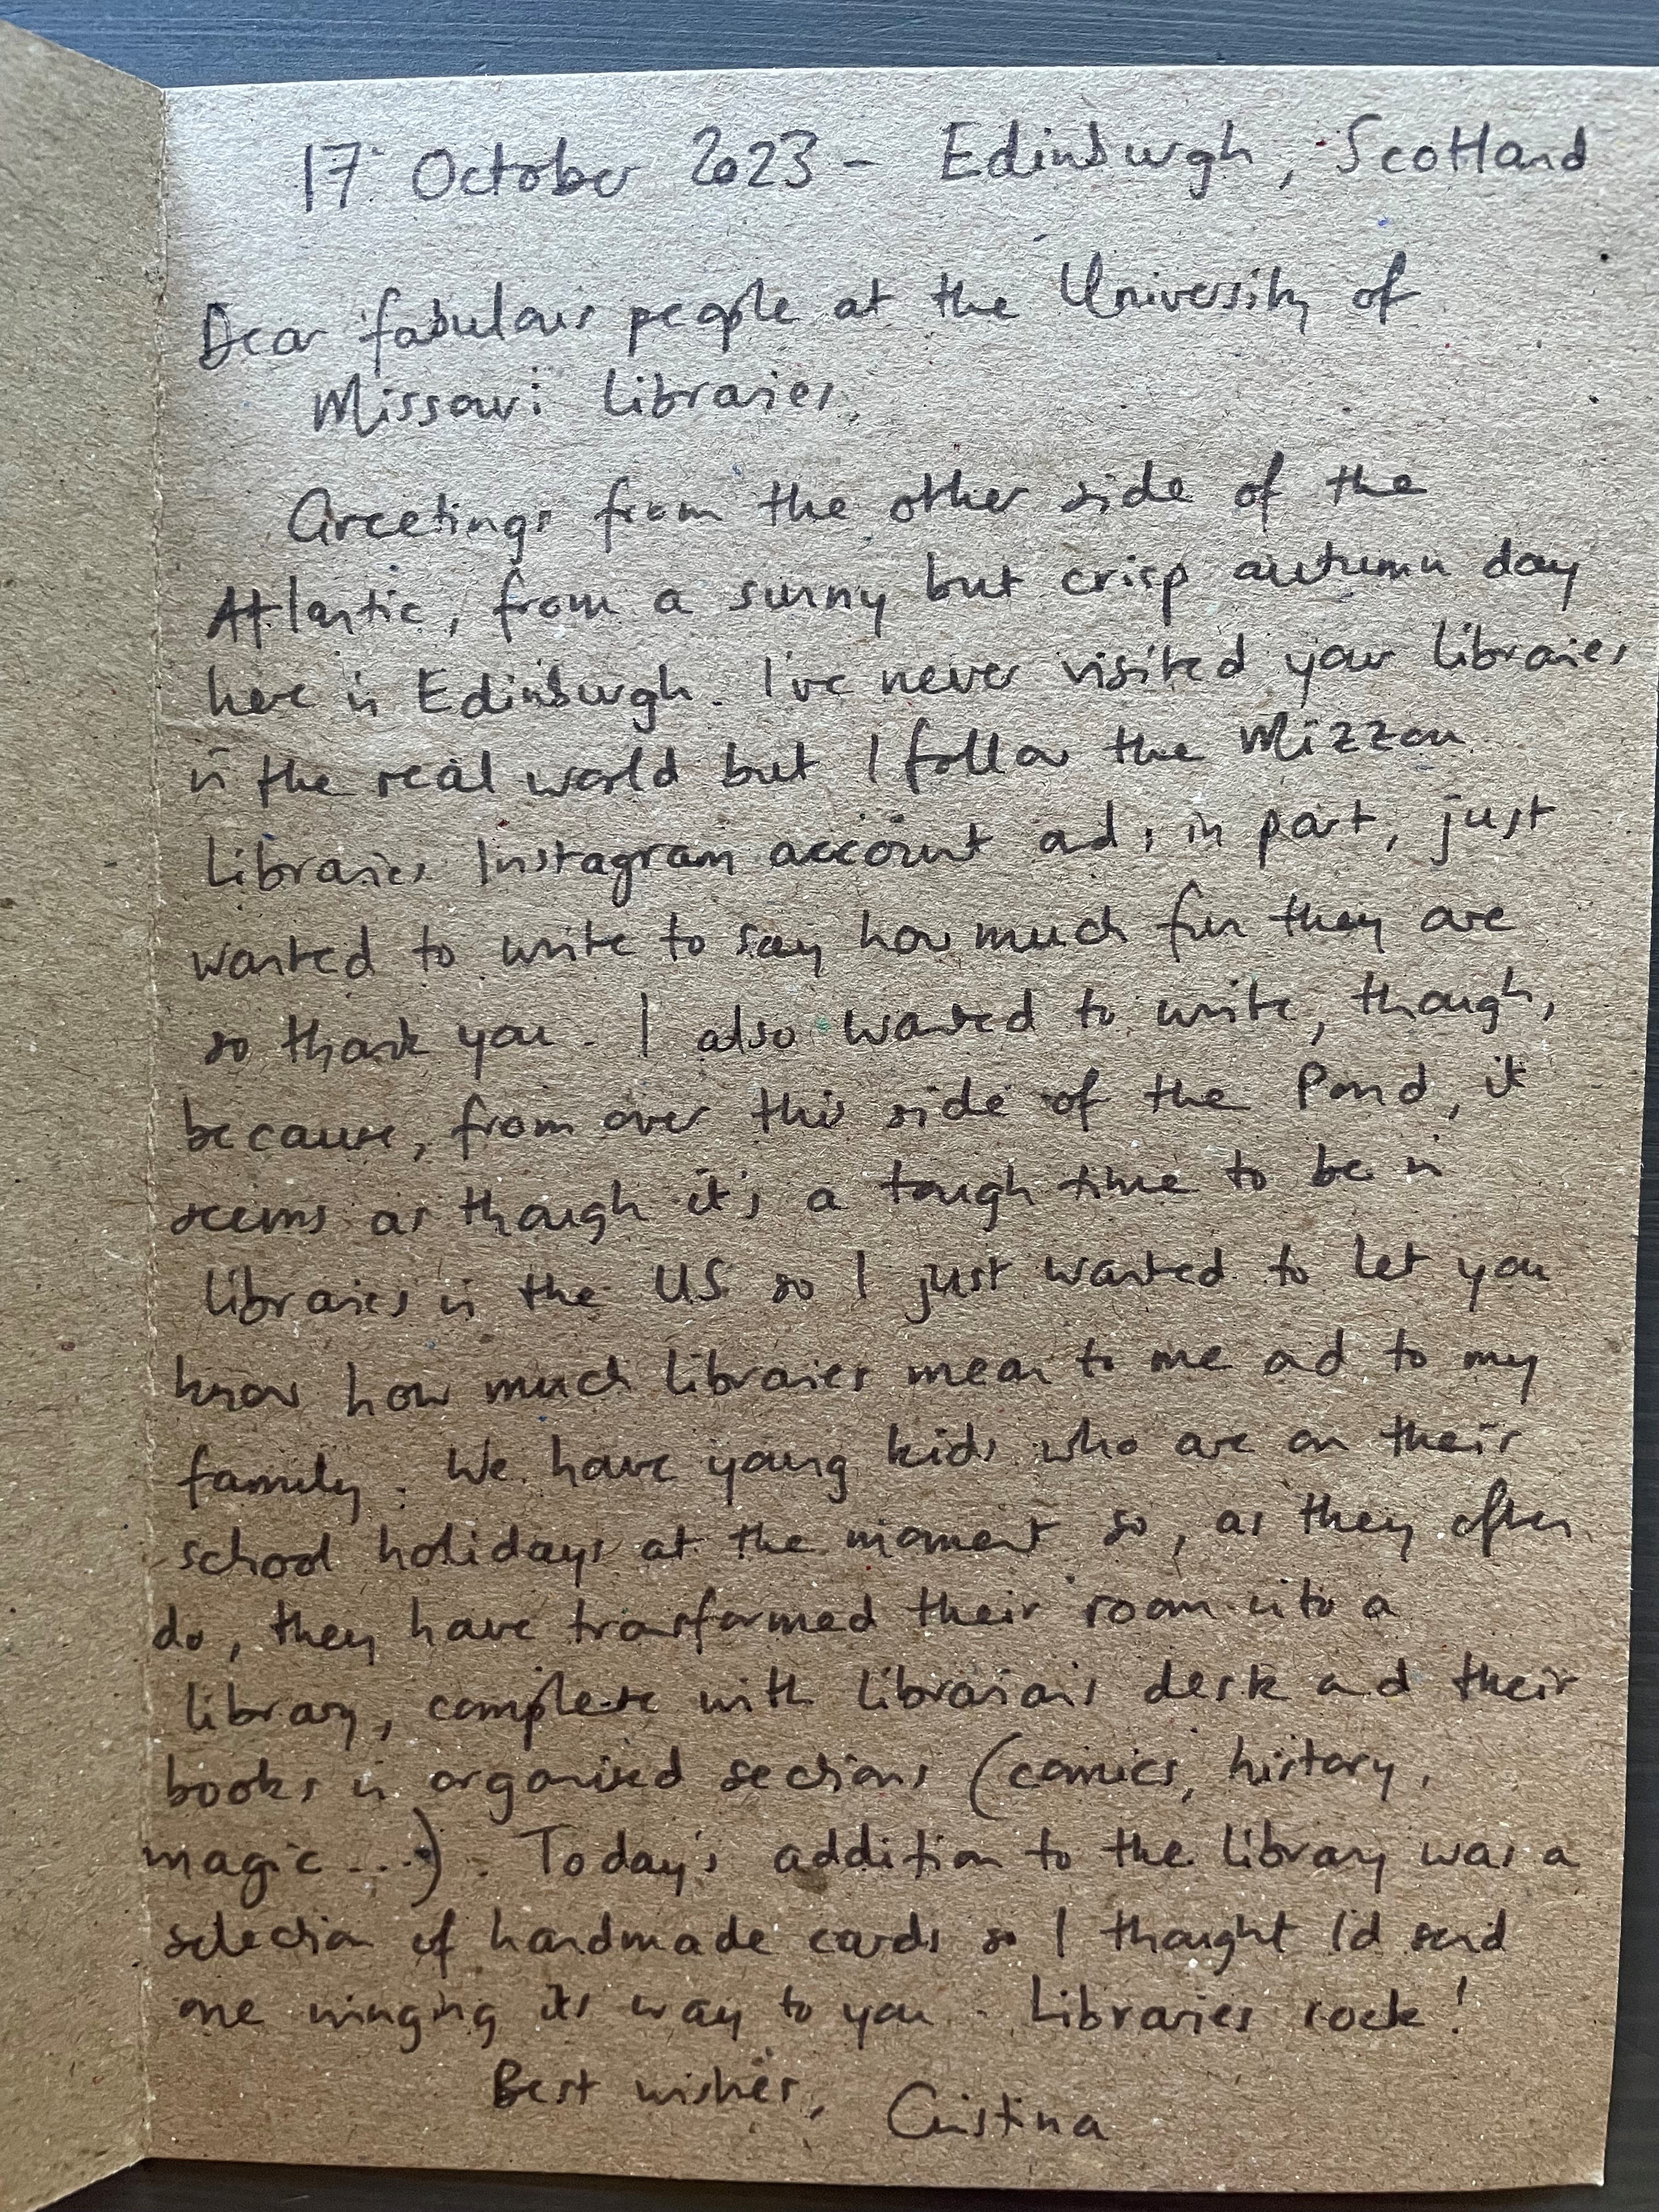 17 October 2023 - Edinburgh, Scotland
Dear fabulous people at the University of
Missouri Libraries,
Greetings from the other side of the
Atlantic, from a sunny but crisp autumn day
here in Edinburgh. I've never visited your libraries
in the real world but I follow the Mizzou
Libraries Instagram account and, in part, just
wanted to write to say how much fun they are
so thank you. I also wanted to write, though,
because, from over this side of the Pond, it
seems as though it's a tough time to be in
libraries in the US so I just wanted to let you
know how much libraries mean to me and to my
family. We have young kids who are on their
school holidays at the moment so, as they often
do, they have transformed their room into a
library, complete with librarian's desk and their
books in organised sections (comics, history,
magic ...). Today's addition to the library was a
selection of handmade cards so I thought I'd send
one winging its way to you. Libraries rock!
Best wishes, Cristina